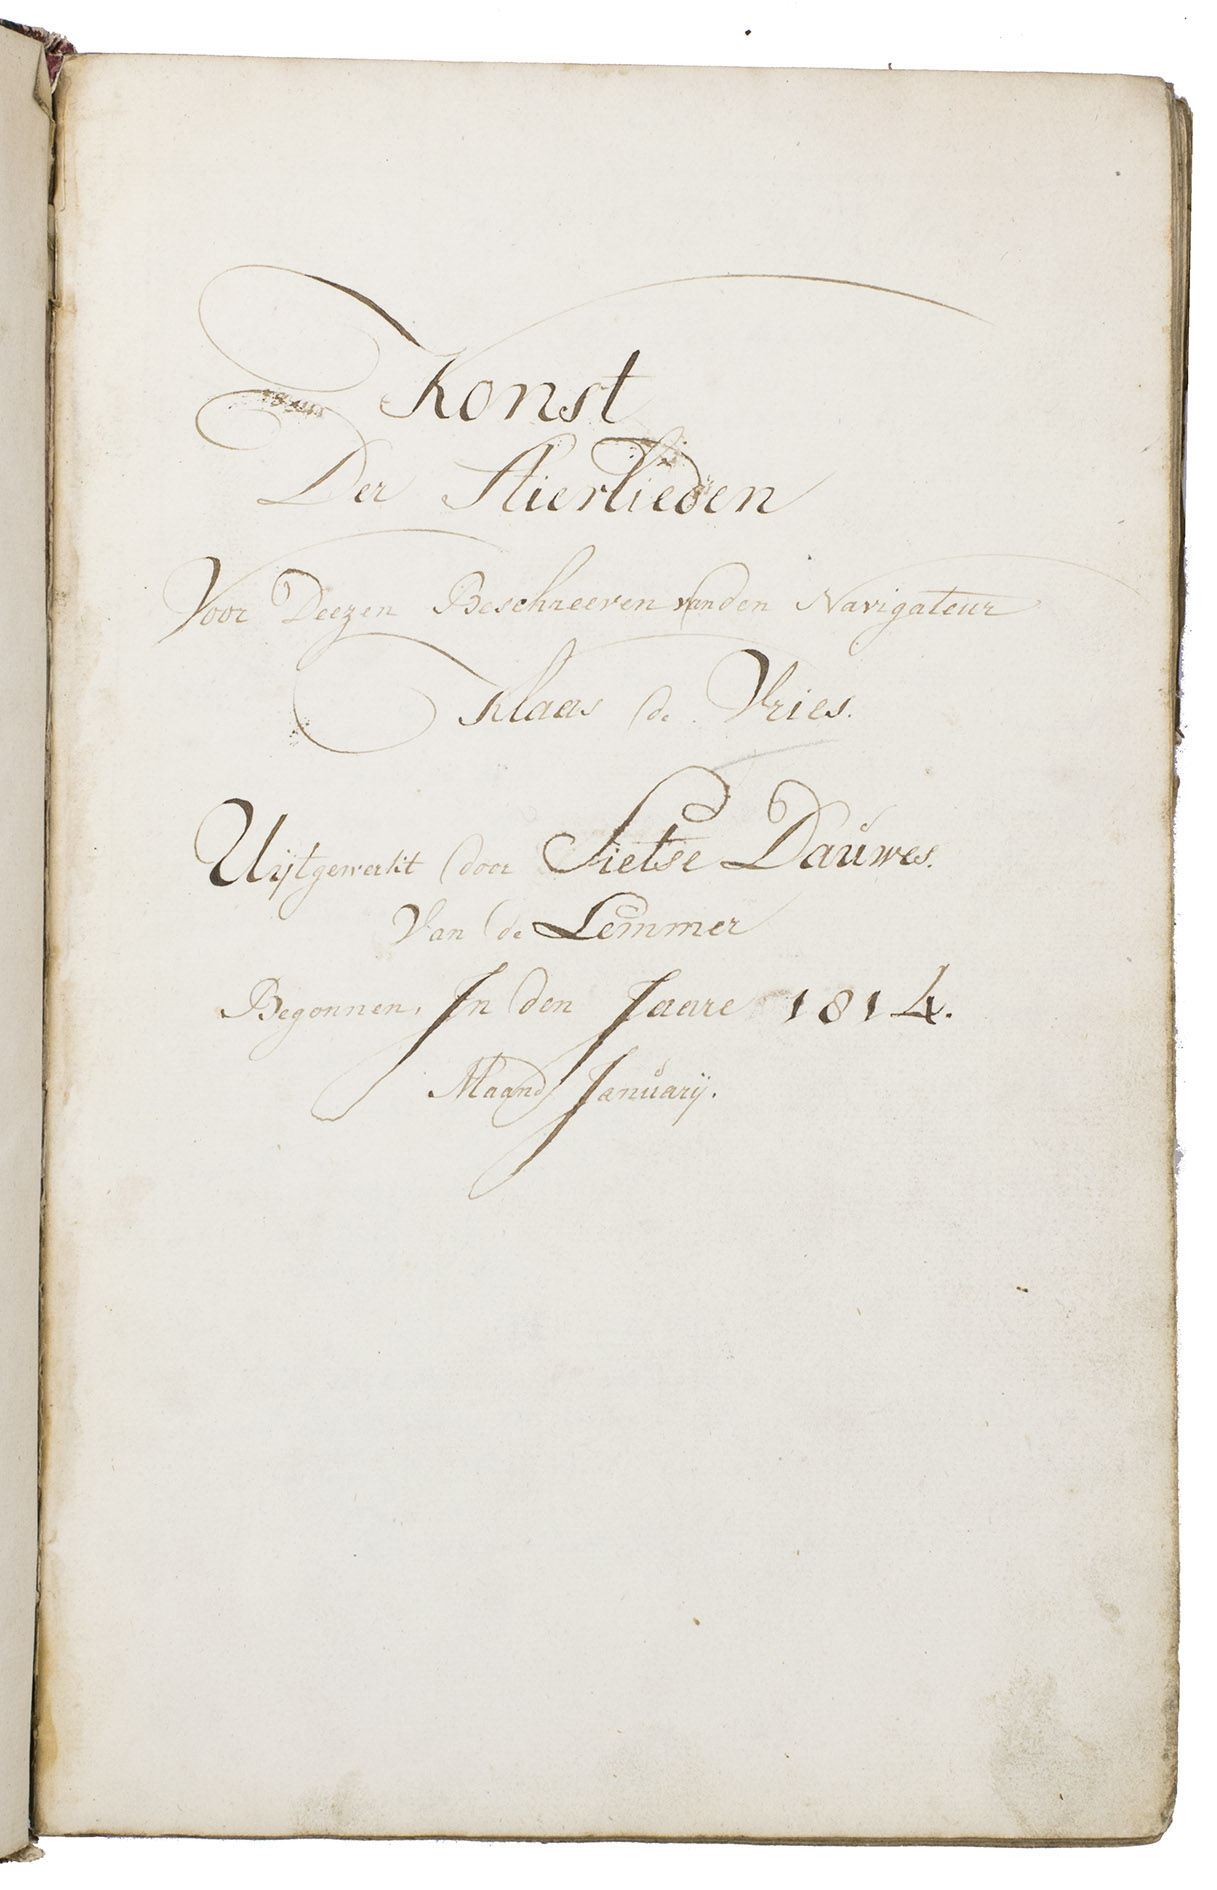 Konst
Der Stierlieden
Voor Deezen Beschreeven van den Navigateur
Klaas de Vries.
Uijtgewerkt door Sietse Dauwes.
Van de Lemmer
Begonnen, In den Jaare 1814.
Maand Januarij.